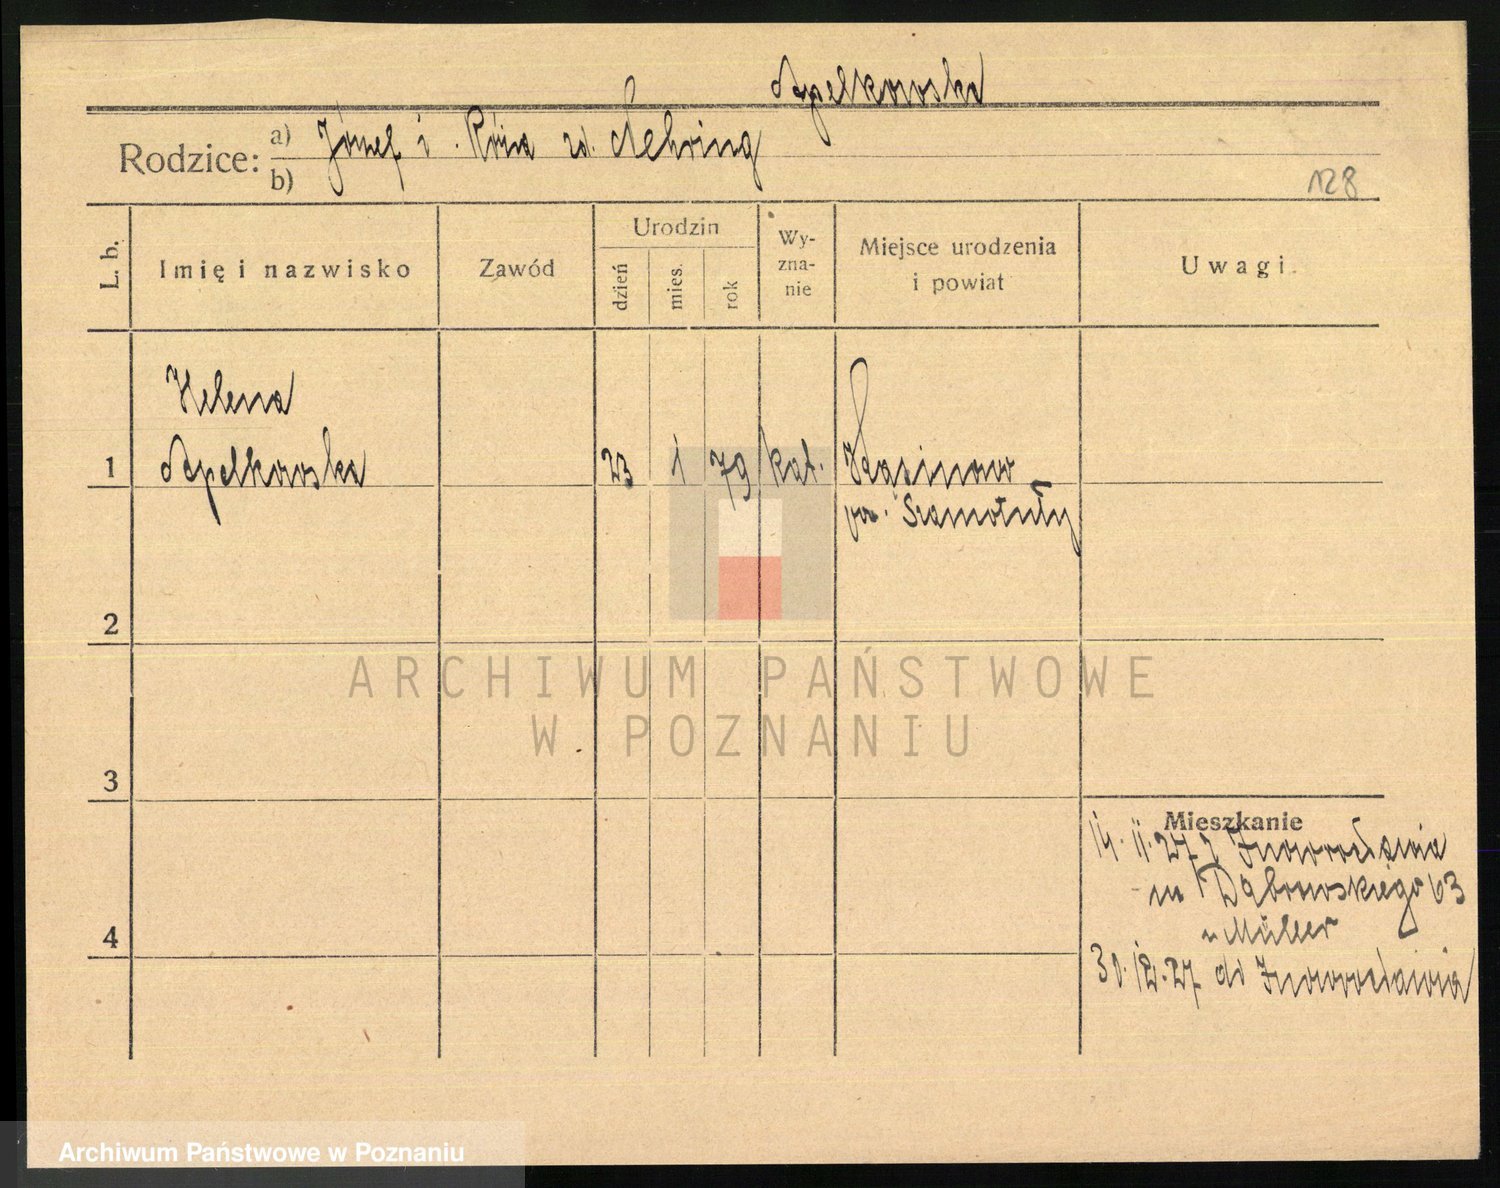 Apelkowska
Rodzice: a) Józef i Róża zd. Nehring
b)
128
L. b.
Imię i nazwisko
Zawód
Urodzin
dzień
mies.
rok
Wy-
zna-
nie
Miejsce urodzenia
i powiat
Uwagi
Helena
1 Apelkowska 23 1 79 kat.
pow. Szamotuły
2
3
4
Mieszkanie
14.11.27 z Inowrocławia
Dąbrowskiego 63
u Müller
31.12.27 do Inowrocławia
ARCHIWUM PAŃSTWOWE
W POZNANIU
Archiwum Państwowe w Poznaniu